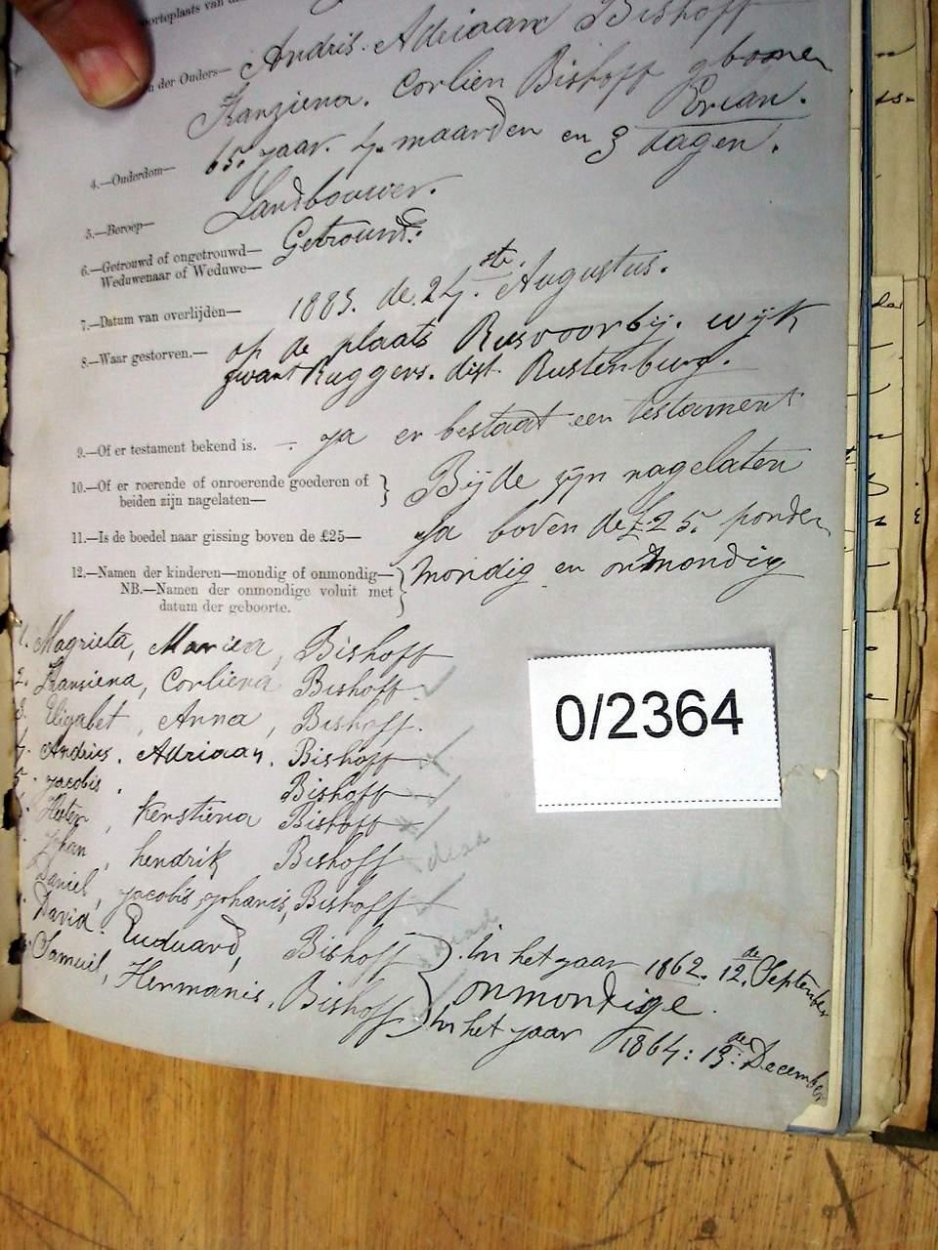 Andris. Adriaan Bishoff
der Ouders—
Fransiena. Corlien Bishoff gboren
Ercan.
4.—Ouderdom— 65. jaar. 4. maanden en 3 dagen.
5.—Beroep— Landbouwer.
6.—Getrouwd of ongetrouwd— Getrouwd.
Weduwenaar of Weduwe—
7.—Datum van overlijden— 1883. de 24. ste. Augustus.
8.—Waar gestorven.— op de plaats Rusvoorbij. wijk
zwart Ruggers. dist. Rustenburg.
9.—Of er testament bekend is. — ja er bestaat een testament
10.—Of er roerende of onroerende goederen of } Bijde zijn nagelaten
beiden zijn nagelaten—
11.—Is de boedel naar gissing boven de £25— Ja boven de £25. ponden
12.—Namen der kinderen—mondig of onmondig— } mondig en onmondig
NB.—Namen der onmondige voluit met
datum der geboorte.
1. Magrieta, Mariea, Bishoff
2. Fransiena, Corliena Bishoff
3. Eligabet, Anna, Bishoff.
4. Andries. Adriaan. Bishoff
5. Jacobis. Bishoff
Hester, Kerstiena Bishoff
Johan, hendrik Bishoff dead
Daniel, Jacobis, Johanis, Bishoff
David. Euduard, Bishoff } In het jaar 1862. 12. de September
dead
onmondige.
Samuil, Hermanis. Bishoff } In het jaar 1864: 13: de December
0/2364